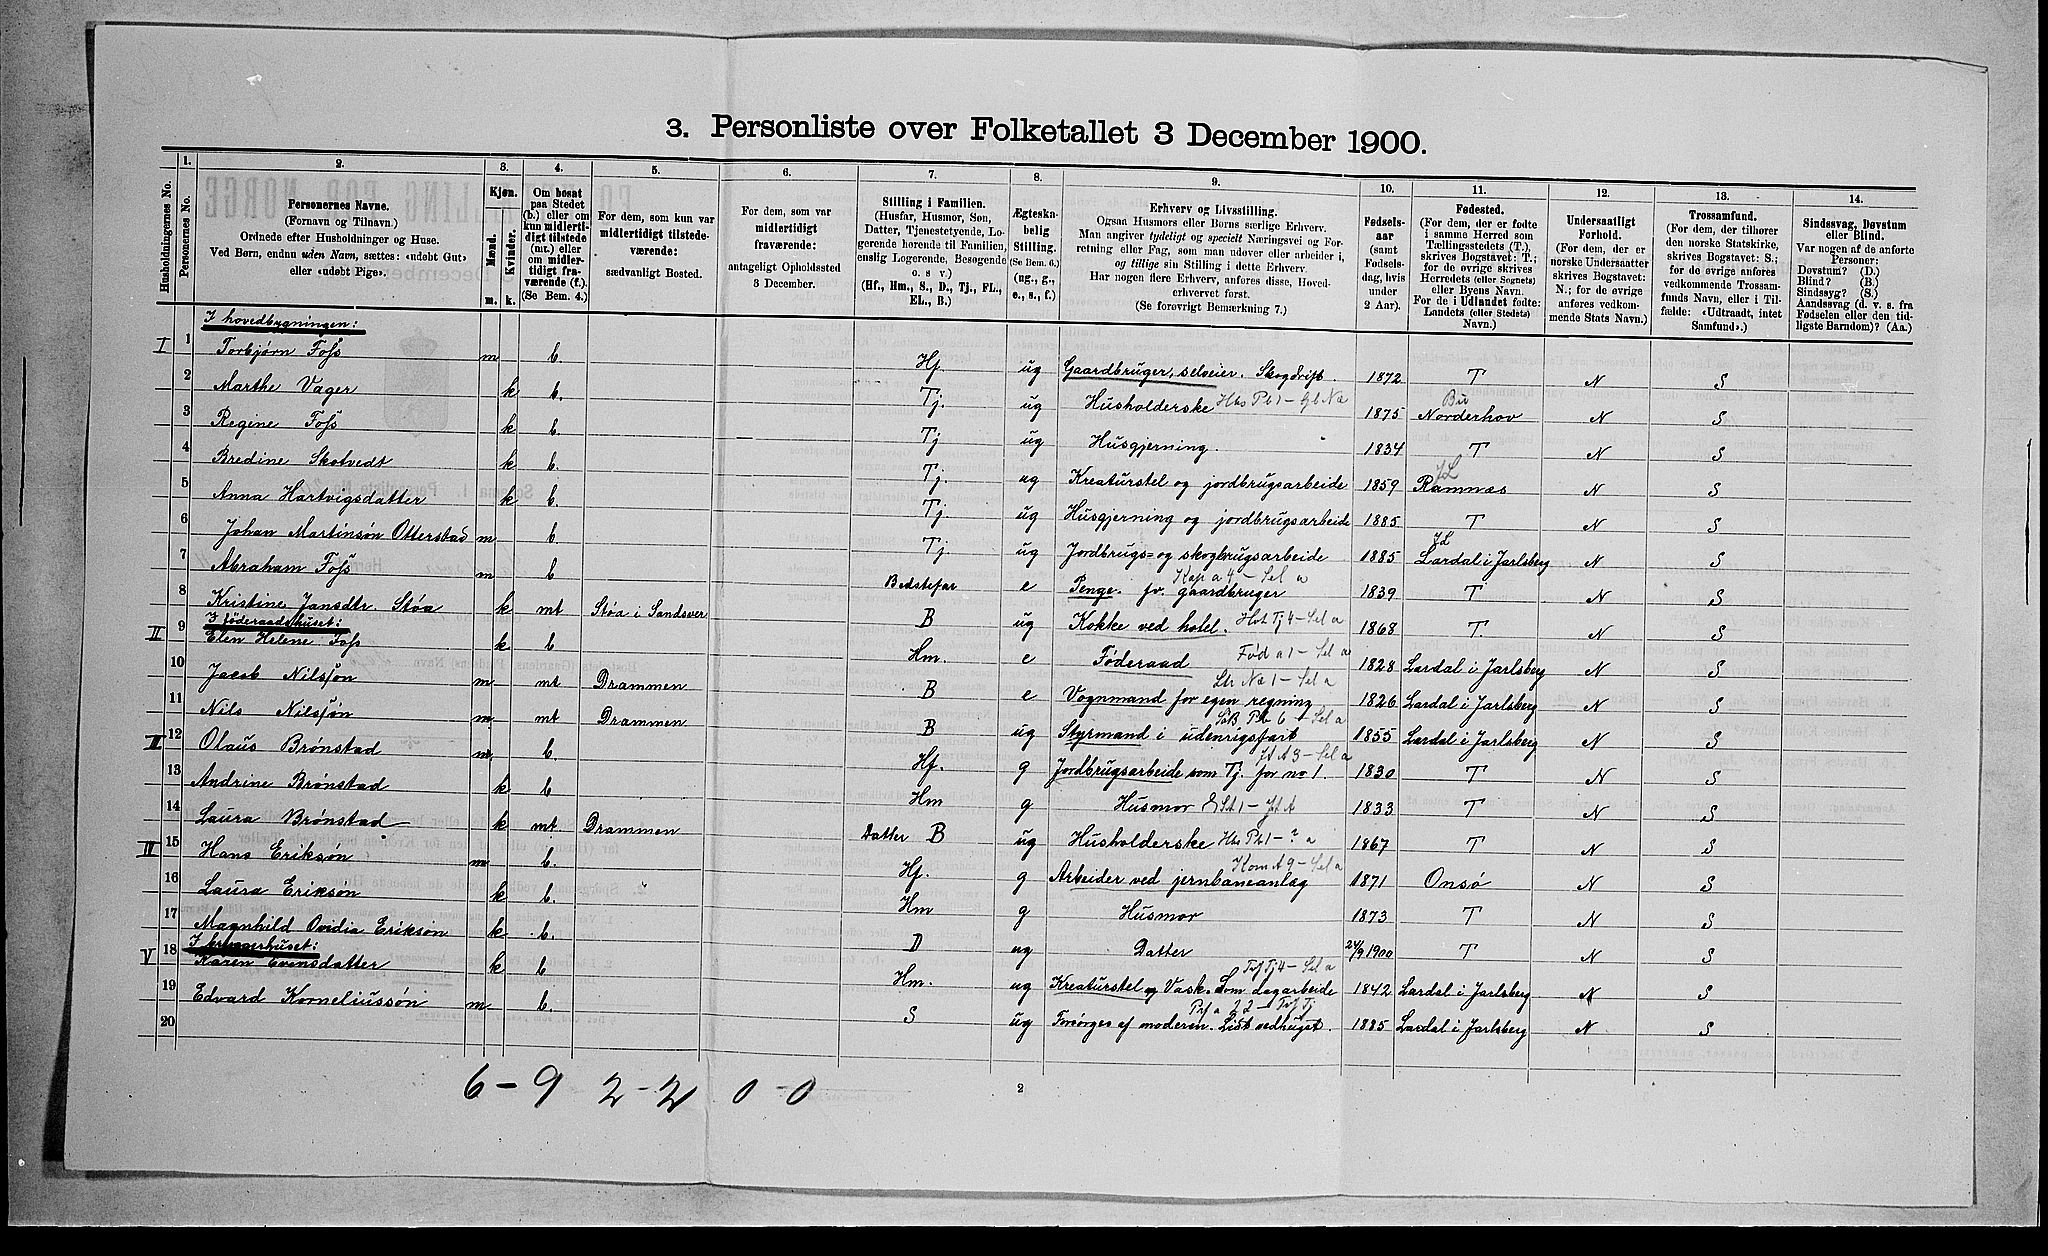 3. Personliste over Folketallet 3 December 1900.
Husholdningernes No.
1.
Personernes No.
2.
Personernes Navne.
(Fornavn og Tilnavn.)
Ordnede efter Husholdninger og Huse.
Ved Børn, endnu uden Navn, sættes: «udøbt Gut»
eller «udøbt Pige».
3.
Kjøn.
Mænd.
Kvinder.
m.
k.
4.
Om bosat
paa Stedet
(b.) eller om
kun midlerti-
digt tilstede
(mt.) eller
om midler-
tidigt fra-
værende (f.).
(Se Bem. 4.)
5.
For dem, som kun var
midlertidigt tilstede-
værende:
sædvanligt Bosted.
6.
For dem, som var
midlertidigt
fraværende:
antageligt Opholdssted
3 December.
7.
Stilling i Familien.
(Husfar, Husmor, Søn,
Datter, Tjenestetyende, Lo-
gerende hørende til Familien,
enslig Logerende, Besøgende
o. s. v.)
(Hf., Hm., S., D., Tj., FL.,
EL., B.)
8.
Ægteska-
belig
Stilling.
(Se Bem. 6.)
(ug., g.,
e., s., f.)
9.
Erhverv og Livsstilling.
Ogsaa Husmors eller Børns særlige Erhverv.
Man angiver tydeligt og specielt Næringsvei og For-
retning eller Fag, som man udøver eller arbeider i,
og tillige sin Stilling i dette Erhverv.
Har nogen flere Erhverv, anføres disse, Hoved-
erhvervet først.
(Se forøvrigt Bemærkning 7.)
10.
Fødsels-
aar
(samt
Fødsels-
dag, hvis
under
2 Aar).
11.
Fødested.
(For dem, der er fødte
i samme Herred som
Tællingsstedets (T.),
skrives Bogstavet: T.;
for de øvrige skrives
Herredets (eller Sognets)
eller Byens Navn.
For de i Udlandet fødte:
Landets (eller Stedets)
Navn.)
12.
Undersaatligt
Forhold.
(For dem, der er
norske Undersaatter
skrives Bogstavet:
N.; for de øvrige
anføres vedkom-
mende Stats Navn.)
13.
Trossamfund.
(For dem, der tilhører
den norske Statskirke,
skrives Bogstavet: S.;
for de øvrige anføres
vedkommende Trossam-
funds Navn, eller i Til-
fælde: «Udtraadt, intet
Samfund».)
14.
Sindssvag, Døvstum
eller Blind.
Var nogen af de anførte
Personer:
Døvstum? (D.)
Blind? (B.)
Sindssyg? (S.)
Aandssvag (d. v. s. fra
Fødselen eller den tid-
ligste Barndom)? (Aa.)
I hovedbygningen:
I 1 Torbjørn Foss m b. Hf. ug Gaardbruger, selveier. Skogdrift. 1872 T N S
2 Marthe Vager k b. Tj. ug Husholderske Hhs Pb1 - Gb Næ 1875 Bu Norderhov N S
3 Regine Foss k b. Tj ug Husgjerning. 1834 T N S
4 Bredine Skotvedt k b. Tj. ug Kreaturstel og jordbrugsarbeide 1859 JL Ramnæs N S
5 Anna Hartvigsdatter k b. Tj. ug Husgjerning og jordbrugsarbeide 1885 T N S
6 Johan Martinsøn Otterstad m b. Tj ug Jordbrugs= og skogbrugsarbeide 1885 JL Lardal i Jarlsberg N S
7 Abraham Foss m b Bedstefar e Penge. fv. gaardbruger Kap a 4 - Sel a 1839 T N S
8 Kristine Jansdtr. Støa k mt Støa i Sandsver B ug Kokke ved hotel. Hot Tj4 - Sel a 1868 T. N S
I föderaadshuset:
II 9 Elen Helene Foss k b Hm. e Føderaad Fød a 1 - Sel a 1828 Lardal i Jarlsberg N S
10 Jacob Nilssøn m mt Drammen B e Vognmand for egen regning Str Næ 1 - Sel a 1826 Lardal i Jarlsberg N S
11 Nils Nilssøn m mt Drammen B ug Styrmand i udenrigsfart SøB Pb 6 - Sel a 1855 Lardal i Jarlsberg N S
III 12 Olaus Brønstad m b. Hf. g Jordbrugsarbeide som Tj. for no 1. Jt A3 - Sel a 1830 T N S
13 Andrine Brønstad k b Hm g Husmor & St1 - Jt A 1833 T N S
14 Laura Brønstad k mt Drammen Datter B ug Husholderske Hhs Pb1 - ? a 1867 T N S
IV 15 Hans Eriksøn m b. Hf. g Arbeider ved jernbaneanlæg Kom A 9 - Sel a 1871 Onsø N S
16 Laura Eriksøn k b. Hm g Husmor 1873 T N S
17 Magnhild Ovidia Eriksøn k b. D ug Datter 24/9 1900 T N S
I bryggerhuset:
V 18 Karen Evensdatter k b Hm. ug Kreaturstel og Vask. Som dagarbeide Tvf Tj4 - Sel a 1842 Lardal i Jarlsberg N S
19 Edvard Korneliussøn m b. S ug Forsørges af moderen. Lidt vedhuget. Prf a 22 - Tvf Tj 1885 Lardal i Jarlsberg N S
20
6 - 9 2 - 2 0 - 0
2